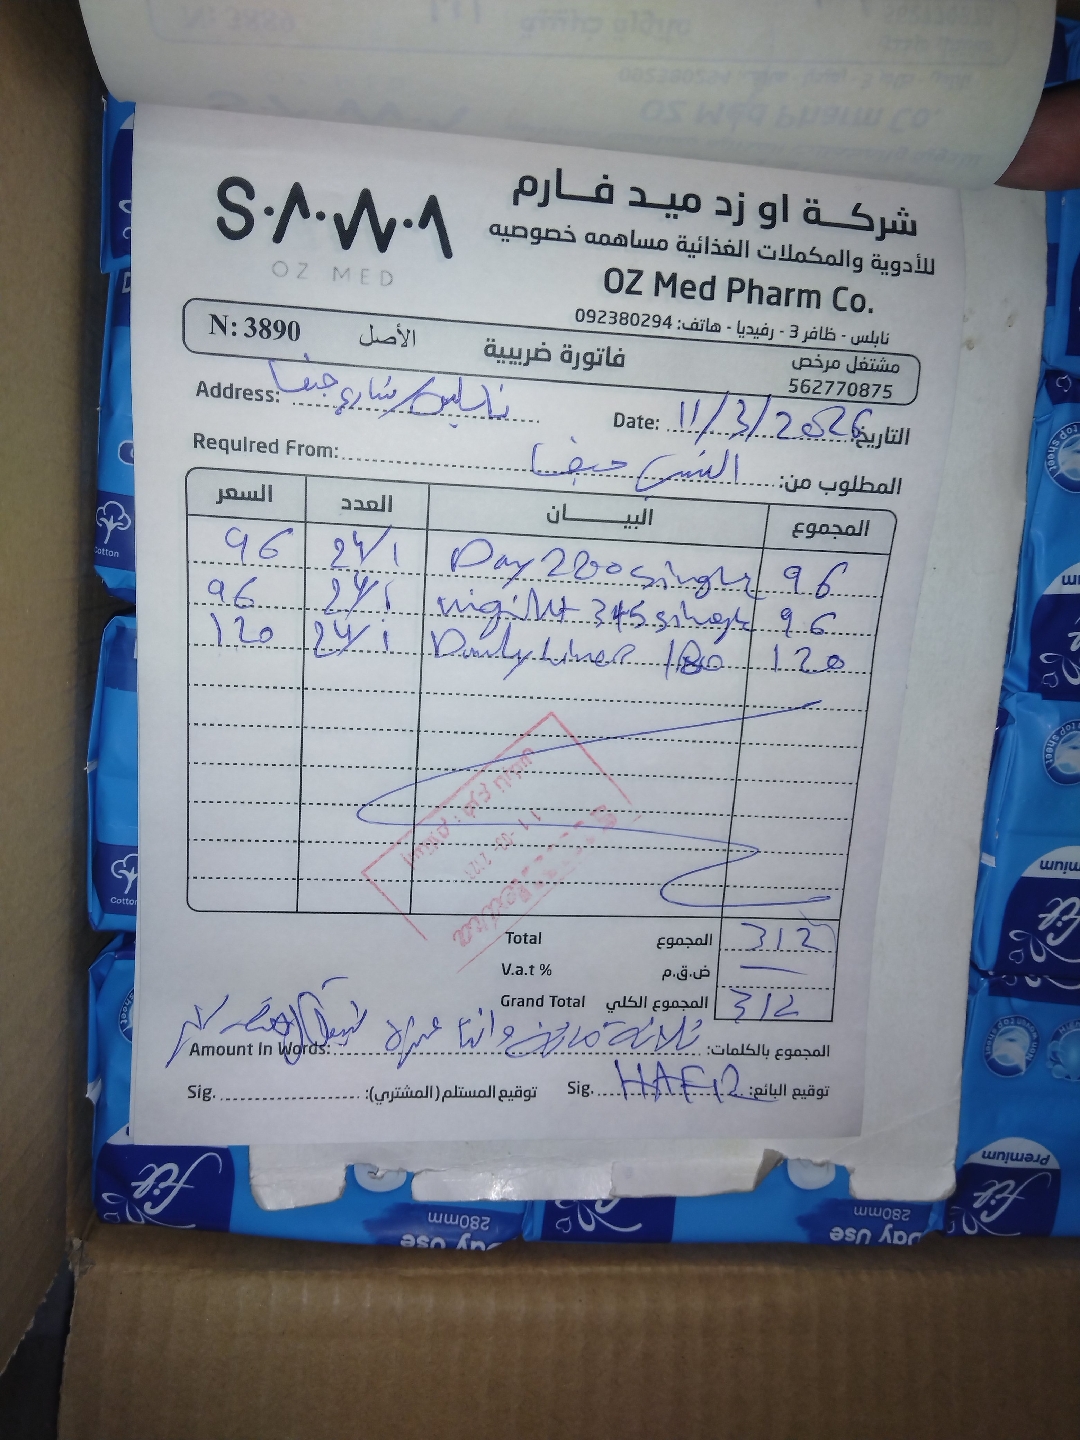 S·A·W·A
OZ MED
شركة او زد ميد فارم
للأدوية والمكملات الغذائية مساهمه خصوصيه
OZ Med Pharm Co.
نابلس - ظافر 3 - رفيديا - هاتف: 092380294
N: 3890 الأصل فاتورة ضريبية مشتغل مرخص
562770875
Address: نابلس / شارع حيفا
Date: 11/3/2026 التاريخ:
Required From: حيفا المطلوب من:
السعر العدد البيــــان المجموع
96 24/1 Day 280 single 96
96 24/1 night 345 single 96
120 24/1 Daily Liner 180 120
Total المجموع 312
V.a.t % ض.ق.م —
Grand Total المجموع الكلي 312
Amount in Words: ثلاثمائة واثنا عشر المجموع بالكلمات:
Sig. توقيع المستلم (المشتري): Sig. HAFIZ توقيع البائع:
Cotton
Cotton
top sheet
Premium
280mm
Day Use
280mm
Day Use
Premium